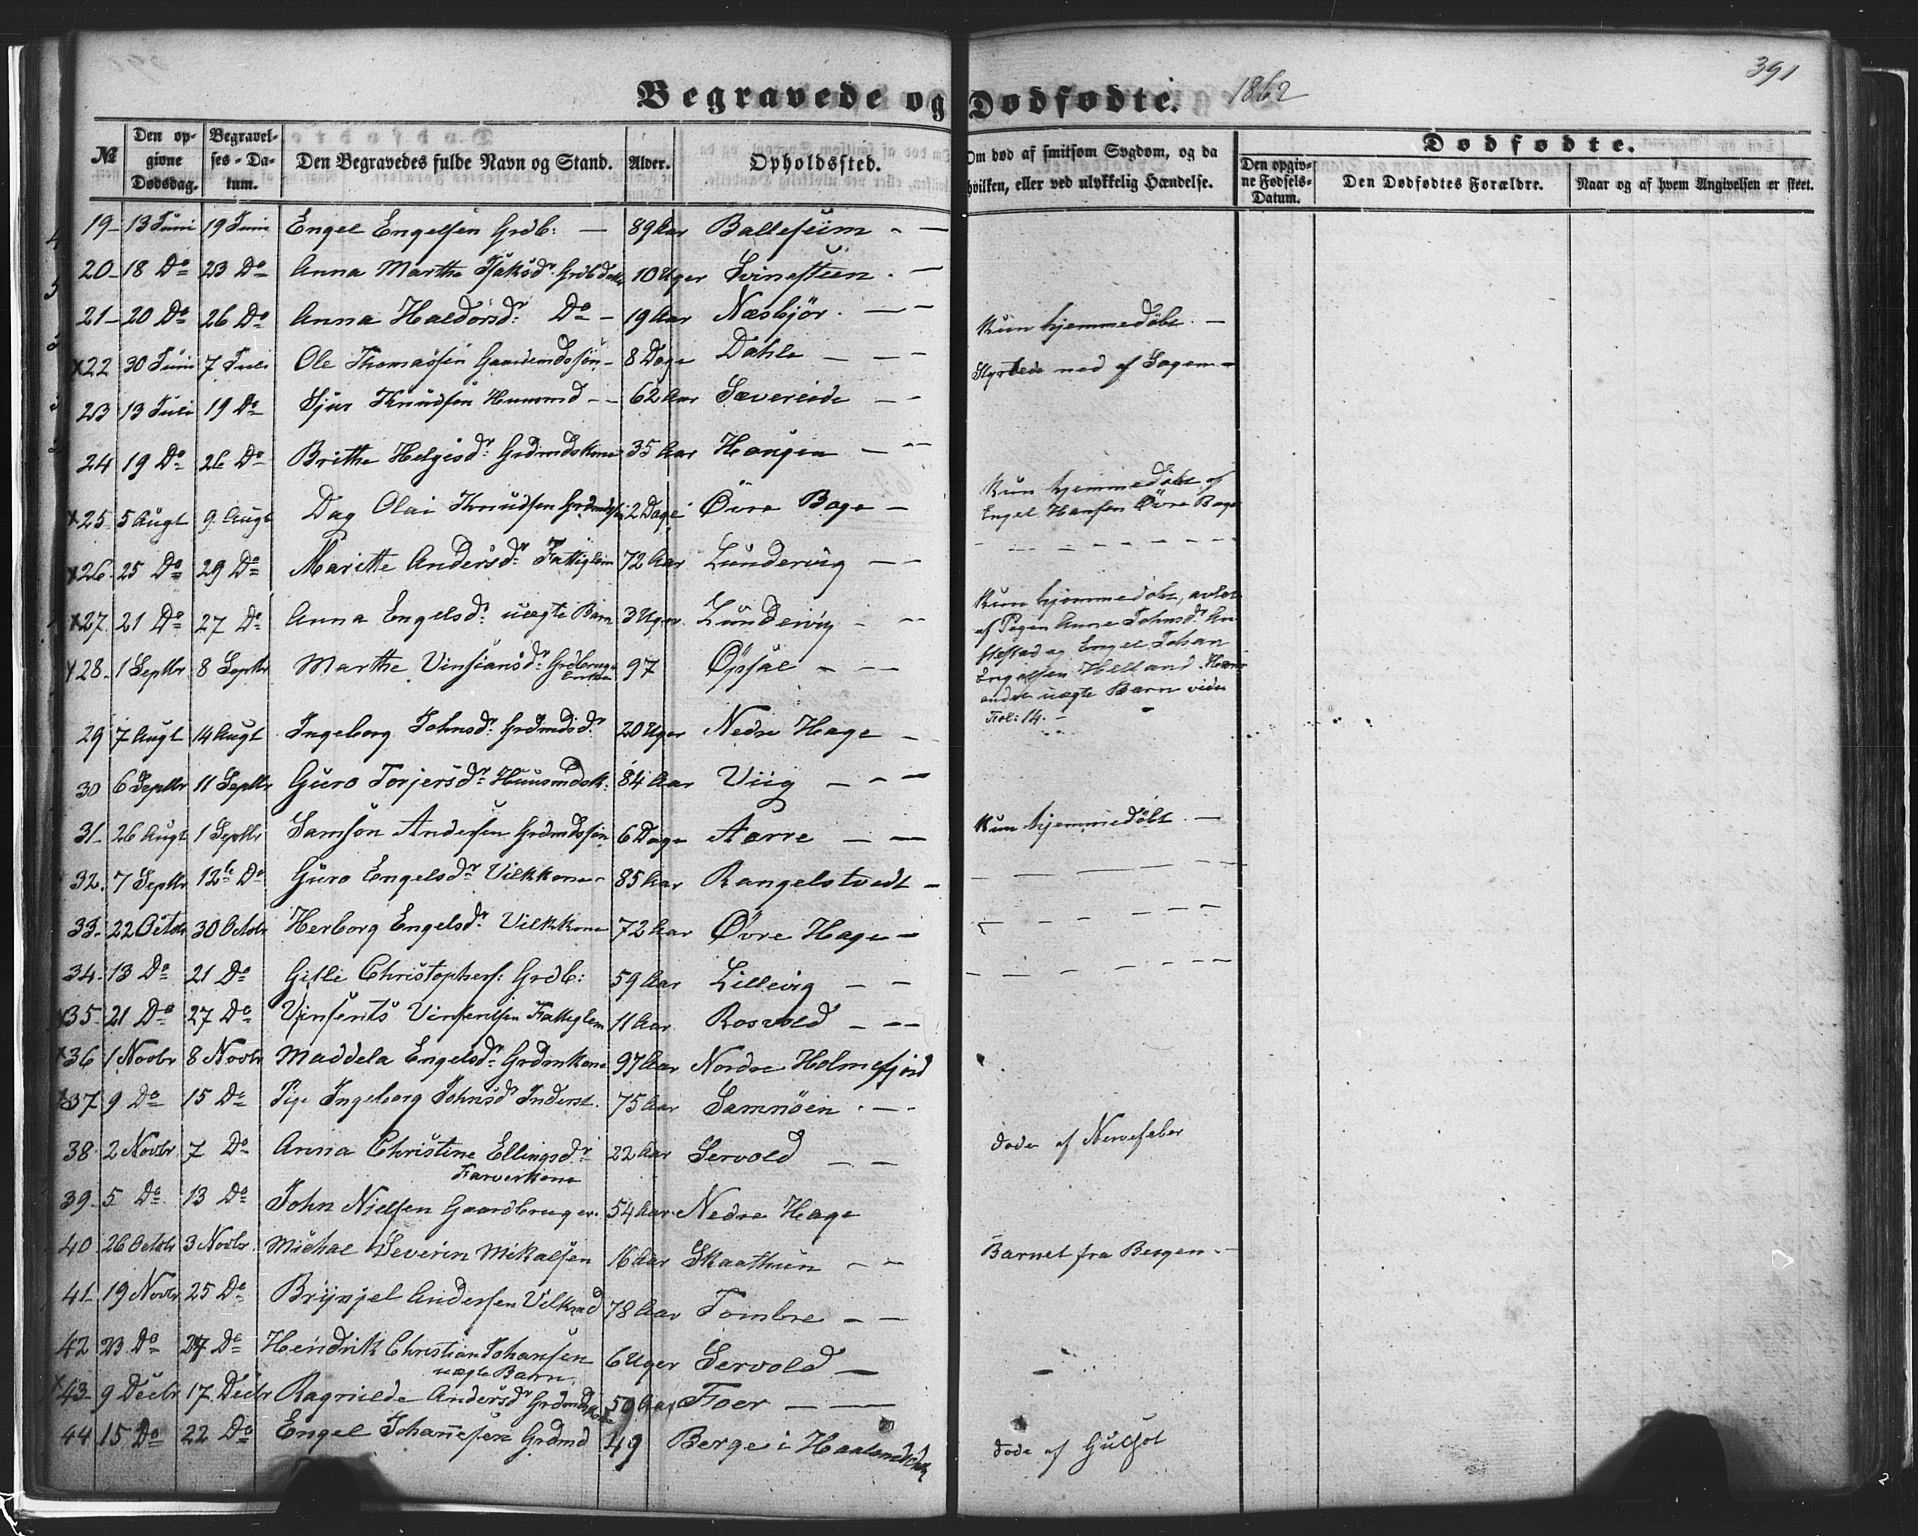 391
Begravede og Dødfødte. 1862
Dødfødte.
№ Den opgivne Dødsdag. Begravelses-Datum. Den Begravedes fulde Navn og Stand. Alder. Opholdssted. Om død af smitsom Sygdom, og da hvilken, eller ved ulykkelig Hændelse. Den opgivne Fødsels-Datum. Den Dødfødtes Forældre. Naar og af hvem Angivelsen er skeet.
19 - 13 Juni 19 Juni Engel Engelsen Grdb: - 89 Aar Ballesiim - -
20 - 18 Do 23 Do Anna Marthe Grdb 10 Uger Svinestien . -
21 - 20 Do 26 Do Anna Haldorsdr: Do - 19 Aar Næsbjør . - -
x22 30 Juni 7 Juli Ole Thomassen 8 Dage Dahle - - - Kun hjemmedøbt. -
23 13 Juli 19 Do Sjur Knudsen Huusmd - - 62 Aar Sævereide - - Styrtede ned af Sagen -
24 19 Do 26 Do Brithe Helgesdr: Grdmdskone 35 Aar Haugen - - -
x25. 5 Augt 9. Augt Dag Olai Knudsen 2 Dage Øvre Bage - Kun hjemmedøbt af
Engel Hansen Øvre Bage
x26. 25 Do 29 Do Maritte Andersdr: Fattiglem 72 Aar Lundervig - -
x27. 21 Do 27 Do Anna Engelsdr: uægte Barn 3 Uger. Lundervig - - Kun hjemmedøbt, avlet
af Pigen Anne Johnsdr
og Engel Johan
Engelsen Helland. Hans
andet uægte Barn vide
Fol: 14. -
x28. 1 Septbr 8 Septbr Marthe Vinsiansdr: Grdbruger
Enke 97 Opsal - -
29 7 Augt 14 Augt Ingeborg Johnsdr: Grdmdsdr. 20 Uger Nedre Hage -
30 6 Septbr 11 Septbr Guro Torjersdr: Huusmdsk: 84 Aar Viig - - -
31. 26 Augt 1 Septbr Samson Andersen Grdmdssøn 6 Dage Aarre - - Kun hjemmedøbt. -
32. 7 Septbr 12te Do Guro Engelsdr: Vilkkone - 85 Aar Rangelstvedt -
33. 22 Octbr 30 Octbr Herborg Engelsdr: Vilkkone 72 Aar Øvre Hage -
34. 13 Do 21 Do Gitle Christophers: Grdb: 59 Aar Lillevig - -
x35. 21 Do 27 Do Vinsents Vinsentsen Fattiglem 11 Aar Rosvold - - -
x36 1 Novbr 8 Novbr Maddela Engelsdr: Grdmkone 97 Aar Nordre Holmefjord
x37 9 Do 15 Do Pige Ingeborg Johnsdr Inderst. 75 Aar Samnøen . - -
38 2 Novbr 7 Do Anna Christine Ellingsdr:
Farverkone 22 Aar Servold - - døde af Nervefeber
39. 5 Do 13 Do John Nielsen Gaardbruger. 54 Aar. Nedre Hage
40 26 Octbr 3 Novbr. Michal Severin Mikalsen 16 Aar Skaathun - - Barnet fra Bergen. -
41 - 19 Novbr 25 Do Brynjel Andersen Vilkmd 78 Aar Tombre - -
42 23 Do 27 Do Hendrik Christian Johansen
uægte Barn. 6 Uger Servold -
x43 - 9 Decbr 17. Decbr Ragnilde Andersdr: Grdmdskone 50 Aar Foer - -
44 15 Do 22 Do Engel Johannesen Grdmd 49 Berge i døde af Gulsot